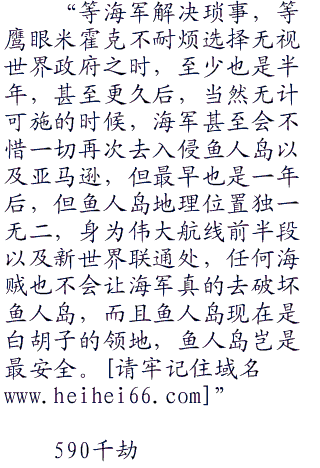 “等海军解决琐事，等
鹰眼米霍克不耐烦选择无视
世界政府之时，至少也是半
年，甚至更久后，当然无计
可施的时候，海军甚至会不
惜一切再次去入侵鱼人岛以
及亚马逊，但最早也是一年
后，但鱼人岛地理位置独一
无二，身为伟大航线前半段
以及新世界联通处，任何海
贼也不会让海军真的去破坏
鱼人岛，而且鱼人岛现在是
白胡子的领地，鱼人岛岂是
最安全。[请牢记住域名
www.heihei66.com]”
590千劫